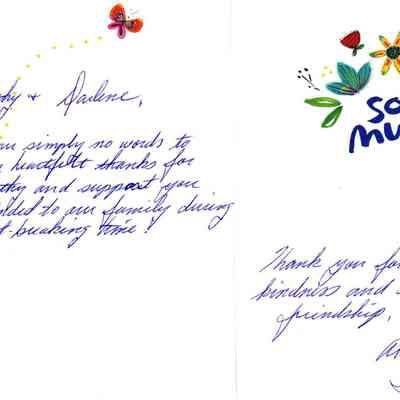 hy & Darlene,
simply no words to
heartfelt thanks for
thy and support you
ded to our family during
t-breaking time!
SO
MU
Thank you fo
kindness and
friendship,